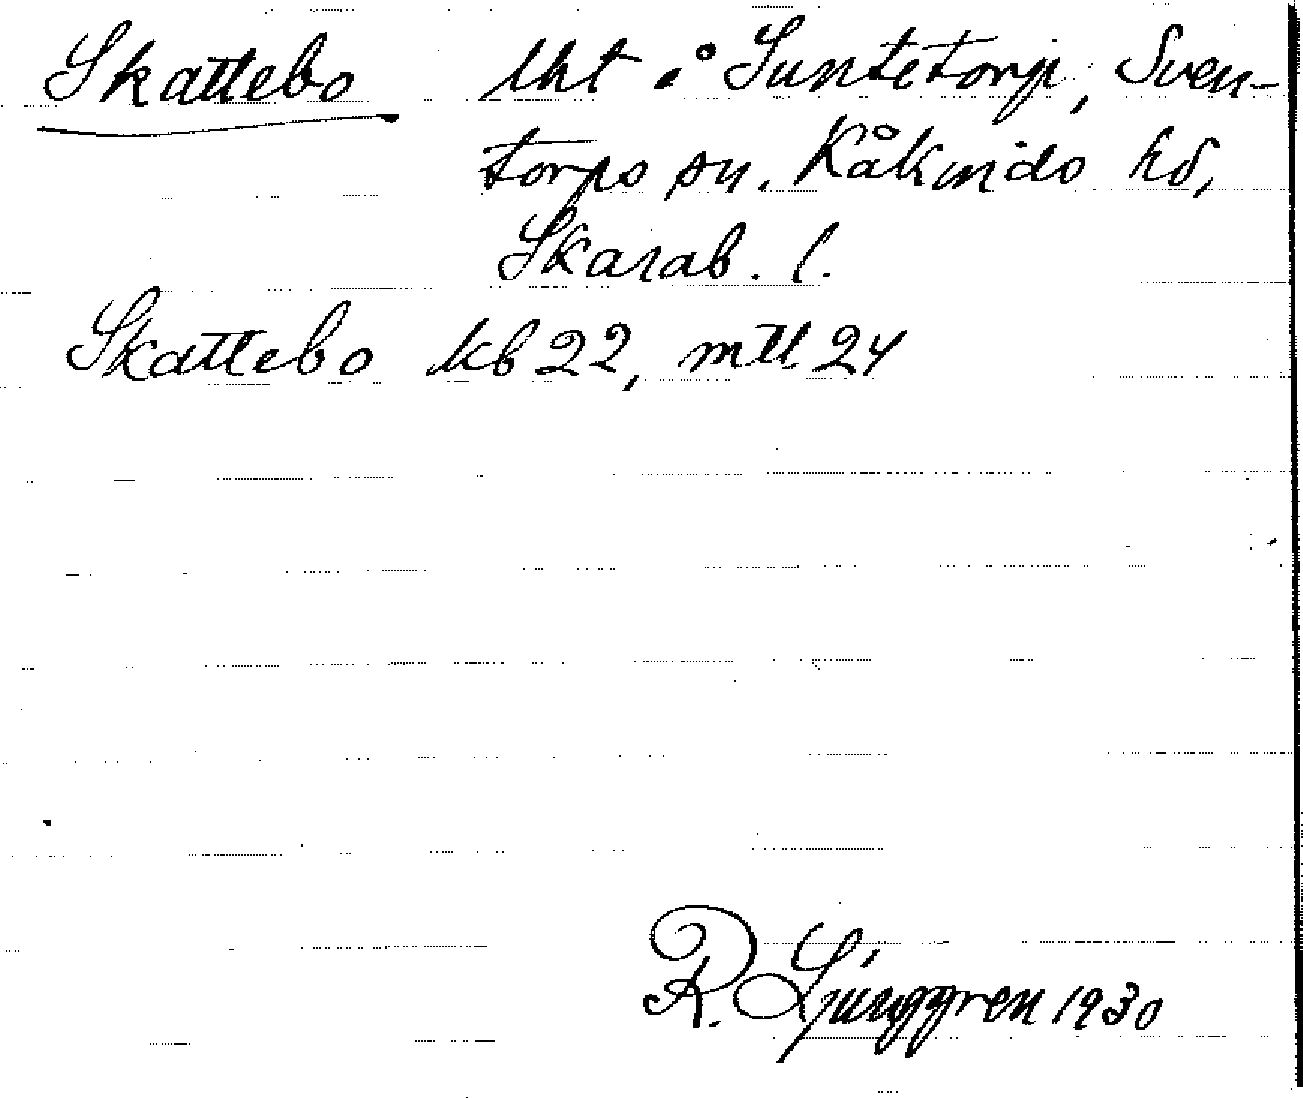 Skattebo lht i Suntetorp, Sven-
torps sn. Kåkinds hd,
Skarab. l.
Skattebo kb 22, mtl 24
R. Ljunggren 1930